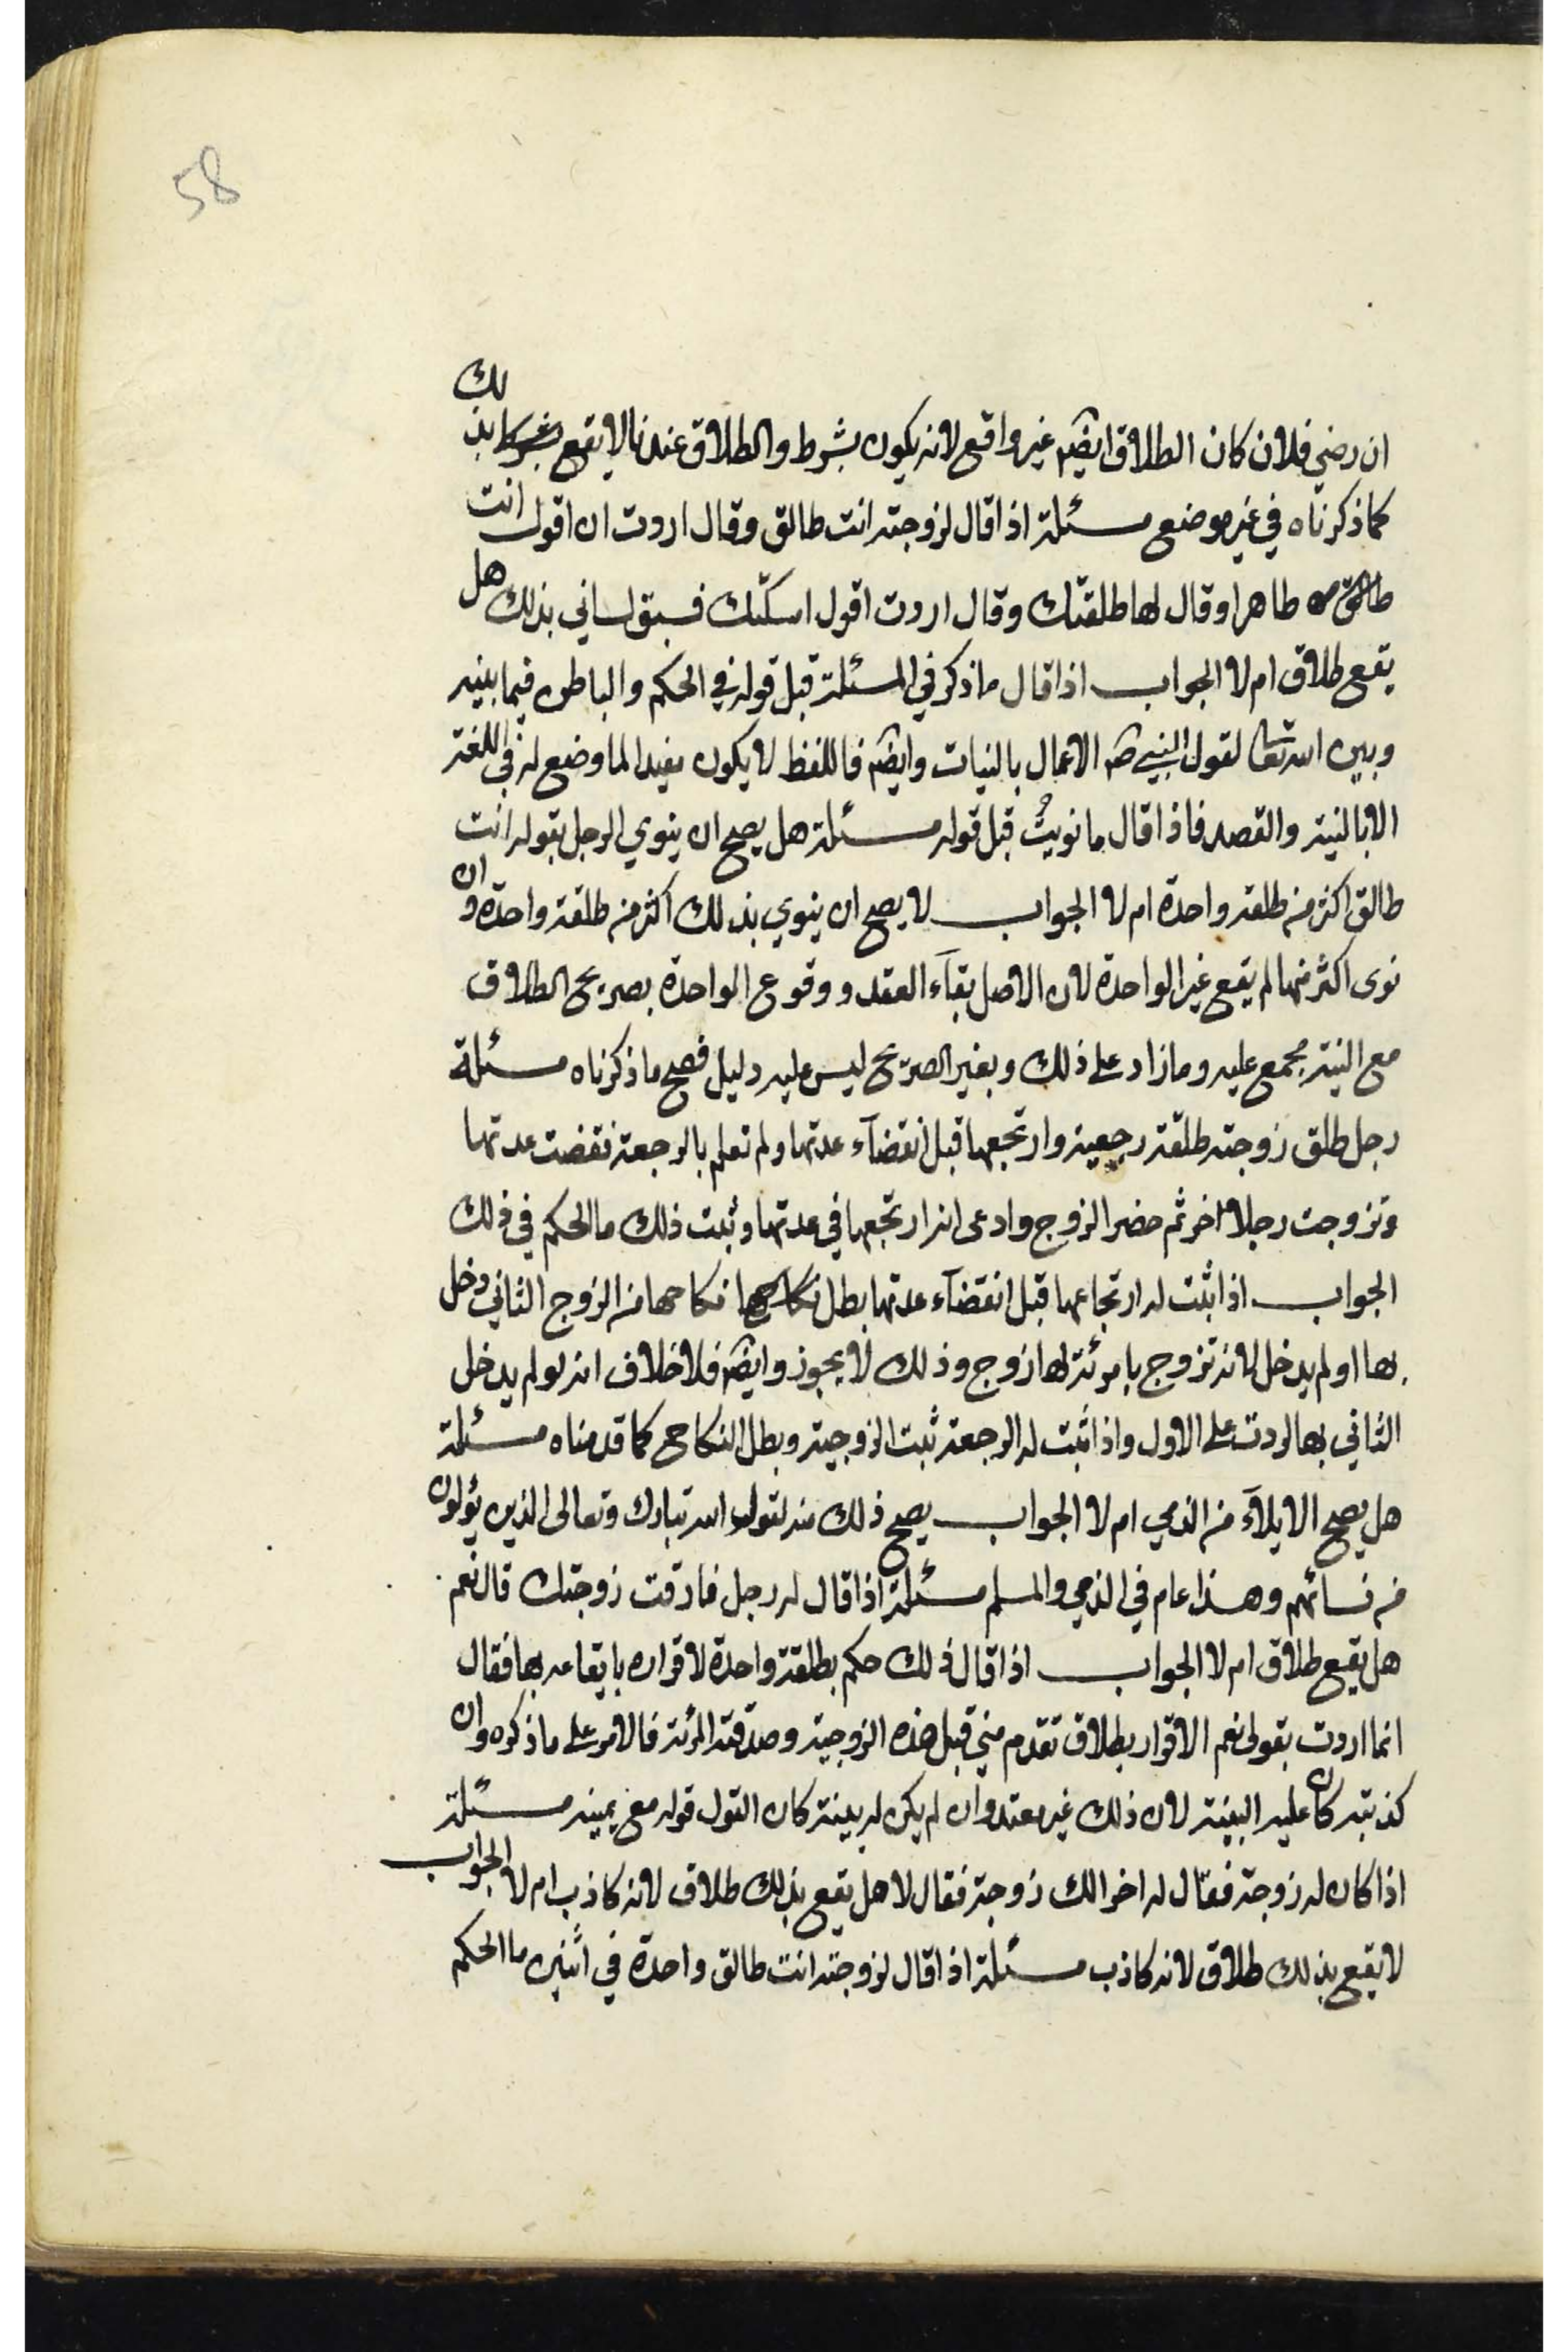 58
ان رضي فلان كان الطلاق ايضم غير واقع لانه يكون بشرط والطلاق عندنا لا يقع بشرط بذلك
كما ذكرناه في غير موضع مسئلة اذا قال لزوجته انت طالق وقال اردت ان اقول انت
طاهر او قال لها طلقتك وقال اردت اقول امسكتك فسبق لساني بذلك هل
يقع طلاق ام لا الجواب اذا قال ما ذكر في المسئلة قبل قوله في الحكم والباطن فيما بينه
وبين الله تعا لقول النبي ص الاعمال بالنيات وايضم فاللفظ لا يكون مفيدا لما وضع له في اللغة
الا بالنية والقصد فاذا قال ما نويتُ قبل قوله مسئلة هل يصح ان ينوي الرجل بقوله انت
طالق اكثر من طلقة واحدة ام لا الجواب لا يصح ان ينوي بذلك اكثر من طلقة واحدة وان
نوى اكثر منها لم يقع غير الواحدة لان الاصل بقآء العقد ووقوع الواحدة بصريح الطلاق
مع النية مجمع عليه وما زاد على ذلك وبغير الصريح ليس عليه دليل فصح ما ذكرناه مسئلة
رجل طلق زوجته طلقة رجعية وارتجعها قبل انقضآء عدتها ولم تعلم بالرجعة فقضت عدتها
وتزوجت رجلا اخر ثم حضر الزوج وادعى انه ارتجعها في عدتها وثبت ذلك ما الحكم في ذلك
الجواب اذا ثبت له ارتجاعها قبل انقضآء عدتها بطل نكاحها نكاحها من الزوج الثاني دخل
بها او لم يدخل لانه تزوج بامرئة لها زوج وذلك لا يجوز وايضم فلا خلاف انه لو لم يدخل
الثاني بها لردت على الاول واذا ثبت له الرجعة ثبت الزوجية وبطل النكاح كما قدمناه مسئلة
هل يصح الايلآء من الذمي ام لا الجواب يصح ذلك منه لقول الله تبارك وتعالى الذين يؤلون
من نسائهم وهذا عام في الذمي والمسلم مسئلة اذا قال له رجل فارقت زوجتك قال نعم
هل يقع طلاق ام لا الجواب اذا قال ذلك حكم بطلقة واحدة لاقراره بايقاعه بها فقال
انما اردت بقولي نعم الاقرار بطلاق تقدم مني قبل هذه الزوجية وصدقته المرئة فالامر على ما ذكره وان
كذبته كان عليه البينة لان ذلك غير معتد وان لم يكن له بينة كان القول قوله مع يمينه مسئلة
اذا كان له زوجة فقال له اخر الك زوجة فقال لا هل يقع بذلك طلاق لانه كاذب ام لا الجواب
لا يقع بذلك طلاق لانه كاذب مسئلة اذا قال لزوجته انت طالق واحدة في اثنين ما الحكم